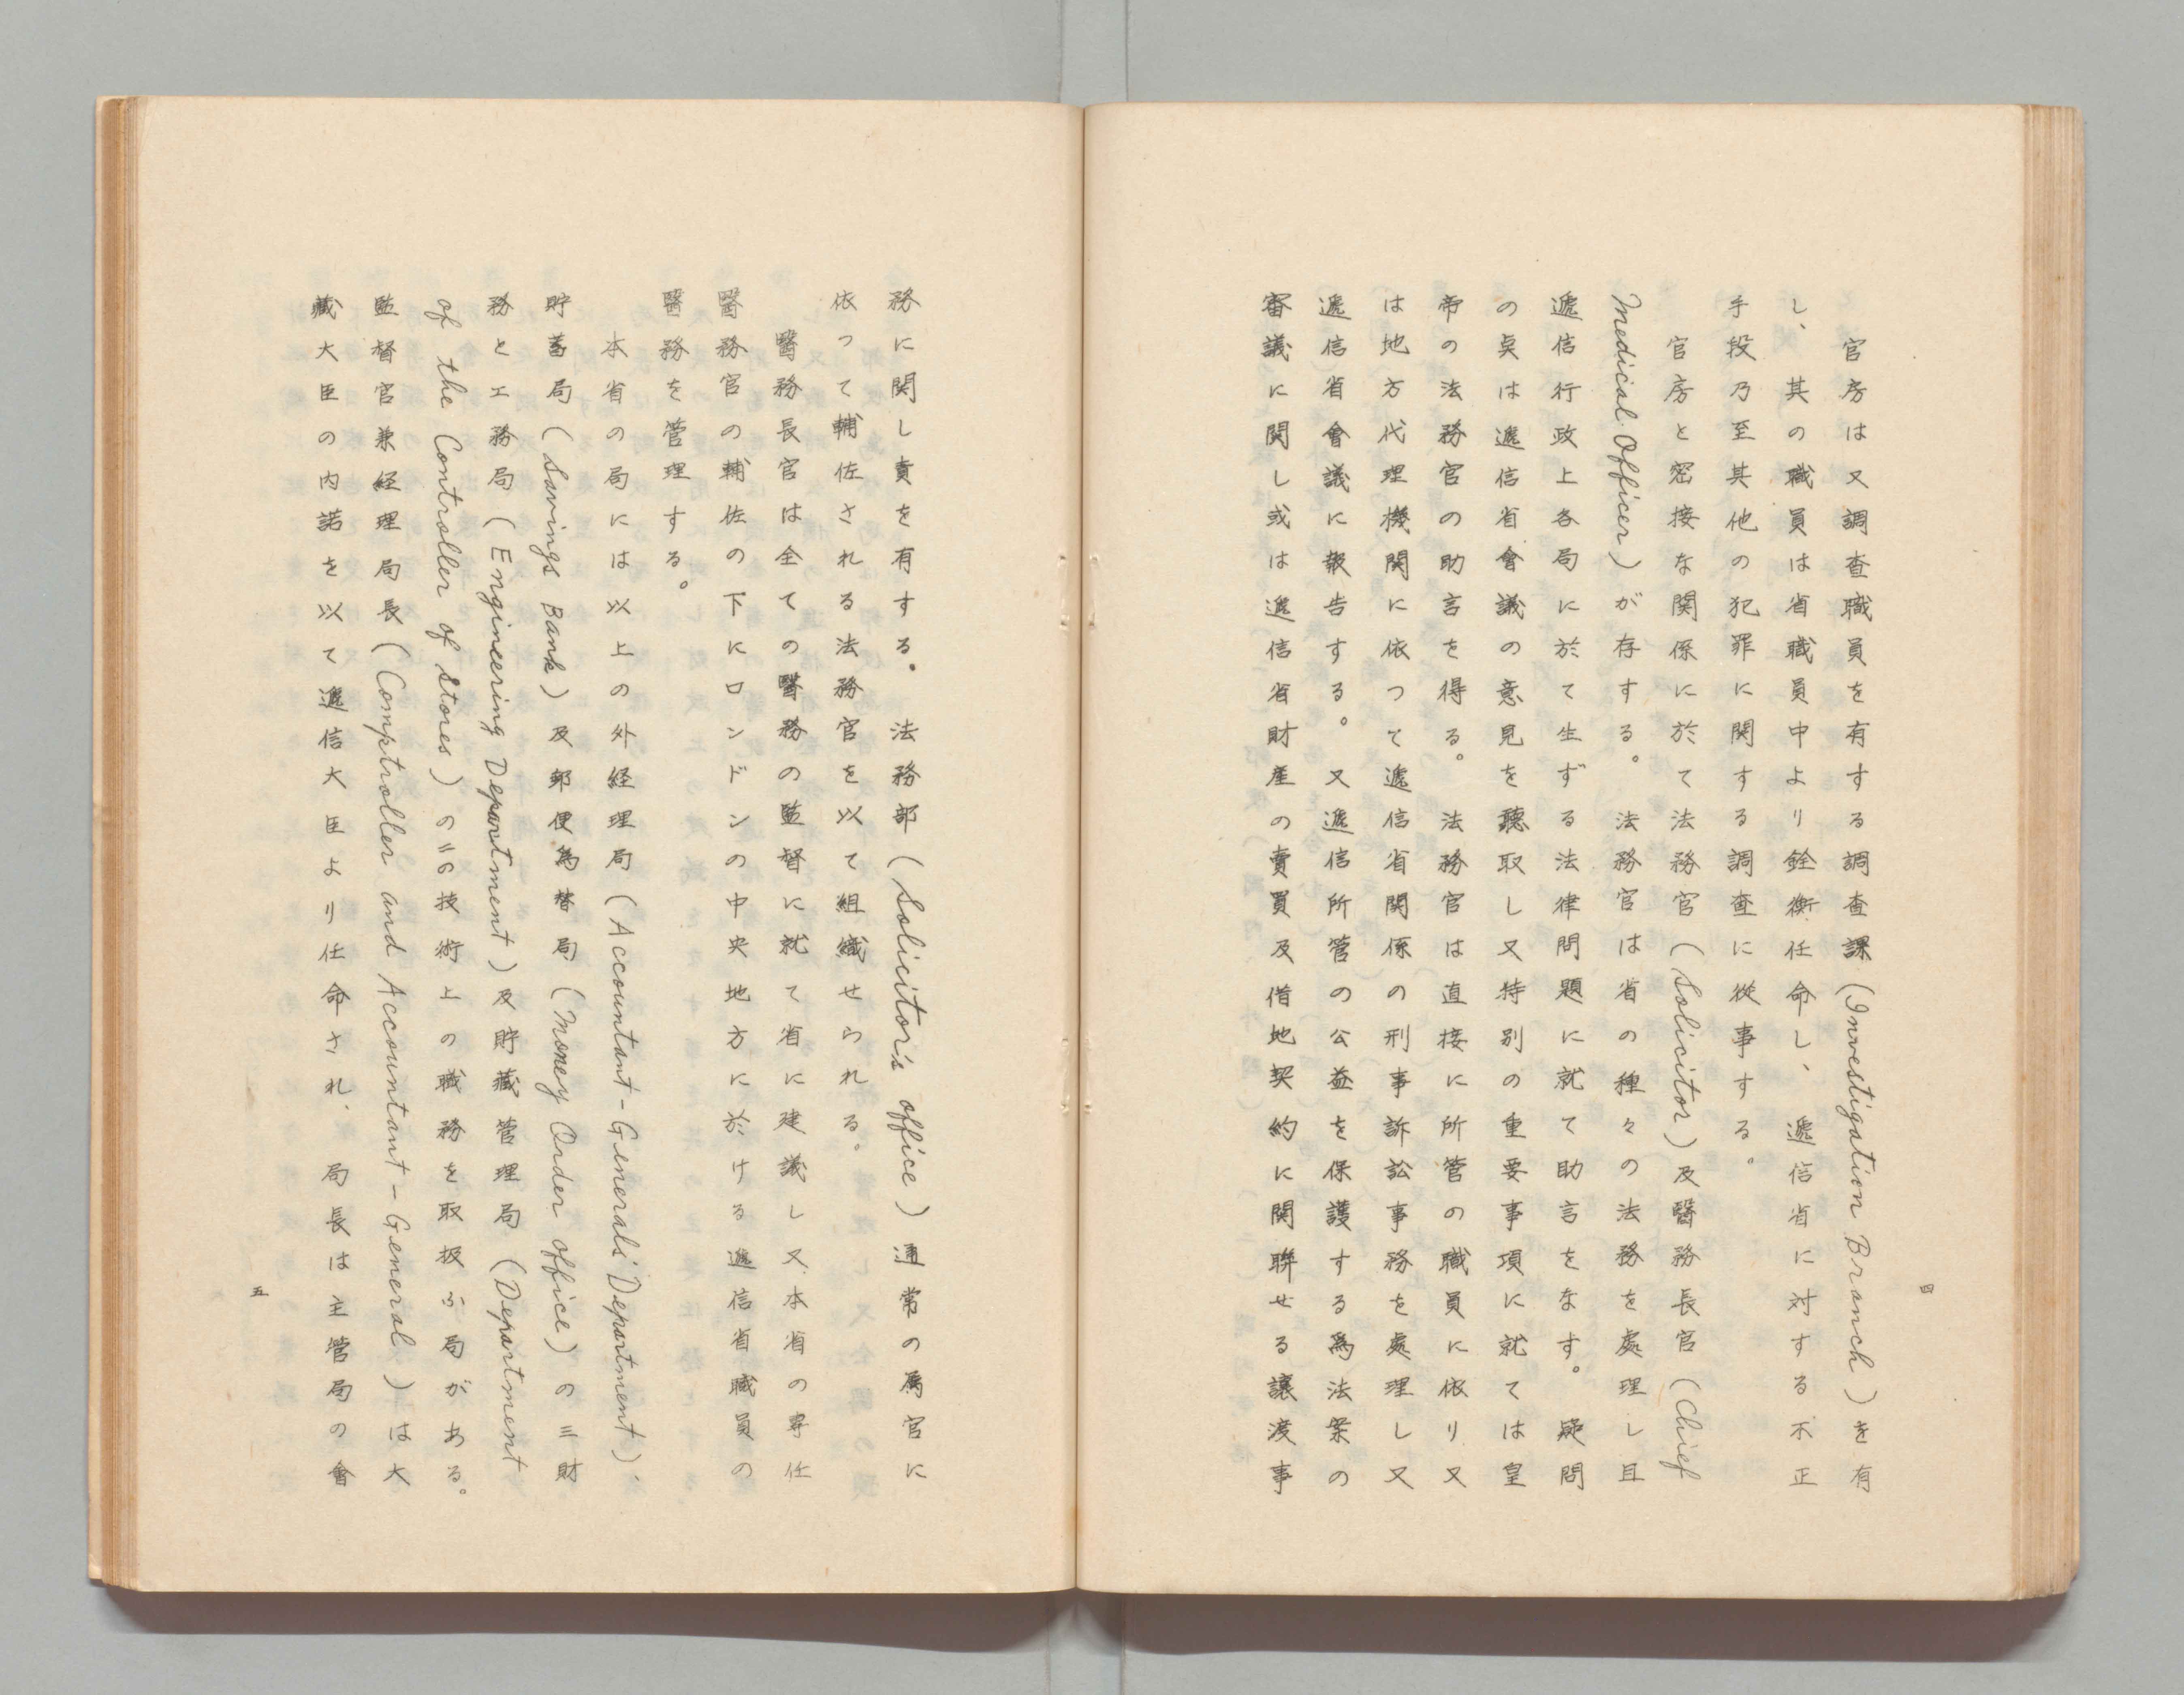 四
官房は又調査職員を有する調査課(Investigation Branch)を有
し、其の職員は省職員中より銓衡任命し、遞信省に対する不正
手段乃至其他の犯罪に関する調査に從事する。
官房と密接な関係に於て法務官(Solicitor)及醫務長官(Chief
Medical Officer)が存する。法務官は省の種々の法務を處理し且
遞信行政上各局に於て生ずる法律問題に就て助言をなす。疑問
の奌は遞信省會議の意見を聽取し又特別の重要事項に就ては皇
帝の法務官の助言を得る。法務官は直接に所管の職員に依り又
は地方代理機関に依つて遞信省関係の刑事訴訟事務を處理し又
遞信省會議に報告する。又遞信所管の公益を保護する爲法案の
審議に関し或は遞信省財産の賣買及借地契約に関聯せる讓渡事
務に関し責を有する。法務部(Solicitor's office)通常の属官に
依つて輔佐される法務官を以て組織せられる。
醫務長官は全ての醫務の監督に就て省に建議し又本省の専任
醫務官の輔佐の下にロンドンの中央地方に於ける遞信省職員の
醫務を管理する。
本省の局には以上の外経理局(Accountant-General's Department)、
貯蓄局(Savings Bank)及郵便為替局(Money Order office)の三財
務と工務局(Engineering Department)及貯藏管理局(Department
of the Controller of Stores)の二の技術上の職務を取扱ふ局がある。
監督官兼経理局長(Comptroller and Accountant-General)は大
藏大臣の内諾を以て遞信大臣より任命され、局長は主管局の會
五